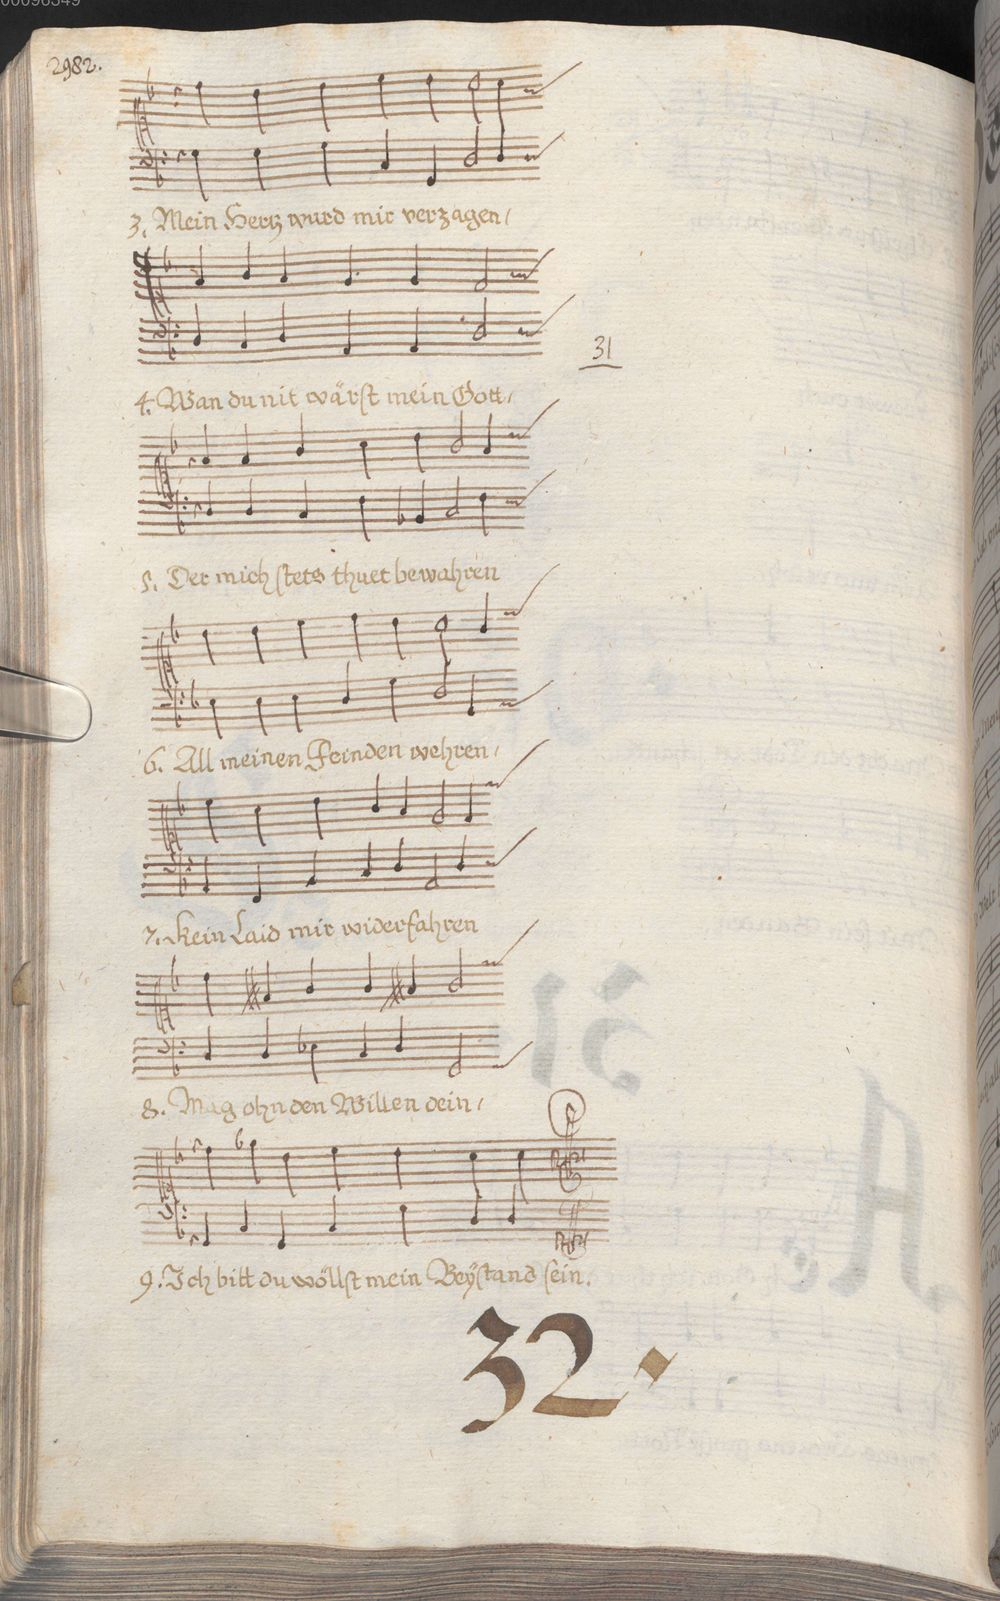 00096349
2982.
3. Mein Hertz wurd mir verzagen/
31
4. Wan du nit wärst mein Gott/
5. Der mich stets thuet bewahren
6. All meinen Feinden wehren/
7. Kein Laid mir widerfahren
8. Mag ohn den Willen dein/
6
9. Ich bitt du wöllst mein Beÿstand sein.
32.